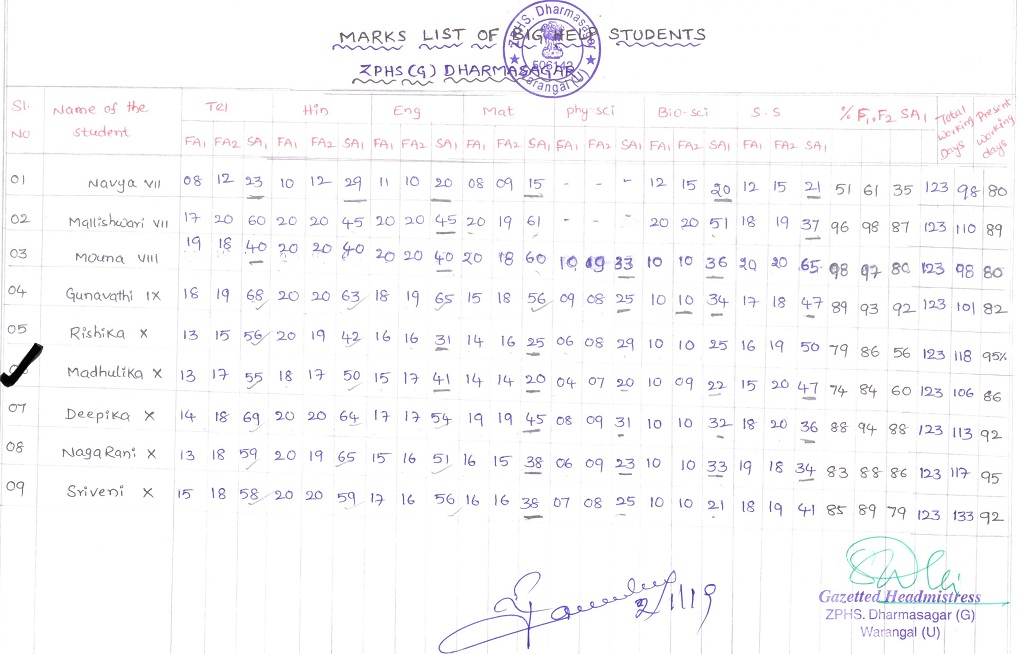 MARKS LIST OF BIG HELP STUDENTS
ZPHS (G) DHARMASAGAR
ZPHS. Dharmasagar
506142
Warangal (U)
Sl. NO Name of the student Tel Hin Eng Mat phy-sci Bio-sci S.S % F1, F2 SA1 Total Working Days Present Working days
FA1 FA2 SA1 FA1 FA2 SA1 FA1 FA2 SA1 FA1 FA2 SA1 FA1 FA2 SA1 FA1 FA2 SA1 FA1 FA2 SA1
01 Navya VII 08 12 23 10 12 29 11 10 20 08 09 15 - - - 12 15 20 12 15 21 51 61 35 123 98 80
02 Mallishwari VII 17 20 60 20 20 45 20 20 45 20 19 61 - - - 20 20 51 18 19 37 96 98 87 123 110 89
03 Mouna VIII 19 18 40 20 20 40 20 20 40 20 18 60 10 09 33 10 10 36 20 20 65 98 97 80 123 98 80
04 Gunavathi IX 18 19 68 20 20 63 18 19 65 15 18 56 09 08 25 10 10 34 17 18 47 89 93 92 123 101 82
05 Rishika X 13 15 56 20 19 42 16 16 31 14 16 25 06 08 29 10 10 25 16 19 50 79 86 56 123 118 95%
Madhulika X 13 17 55 18 17 50 15 17 41 14 14 20 04 07 20 10 09 22 15 20 47 74 84 60 123 106 86
07 Deepika X 14 18 69 20 20 64 17 17 54 19 19 45 08 09 31 10 10 32 18 20 36 88 94 88 123 113 92
08 NagaRani X 13 18 59 20 19 65 15 16 51 16 15 38 06 09 23 10 10 33 19 18 34 83 88 86 123 117 95
09 Sriveni X 15 18 58 20 20 59 17 16 56 16 16 38 07 08 25 10 10 21 18 19 41 85 89 79 123 133 92
2/1/19
Gazetted Headmistress
ZPHS. Dharmasagar (G)
Warangal (U)